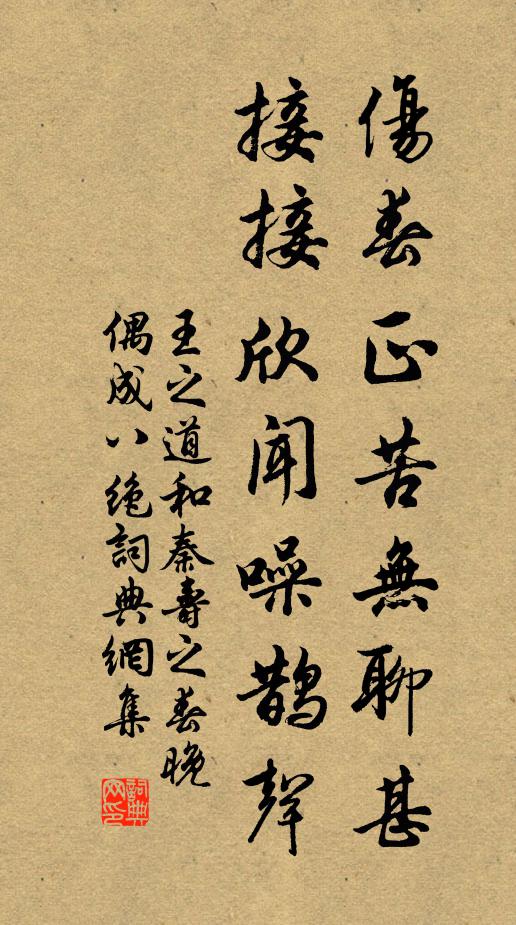 傷春正苦無聊甚
接接欣聞噪鵲聲
王之道和秦壽之春晚
偶成八絶詞典網集
詞典
网印